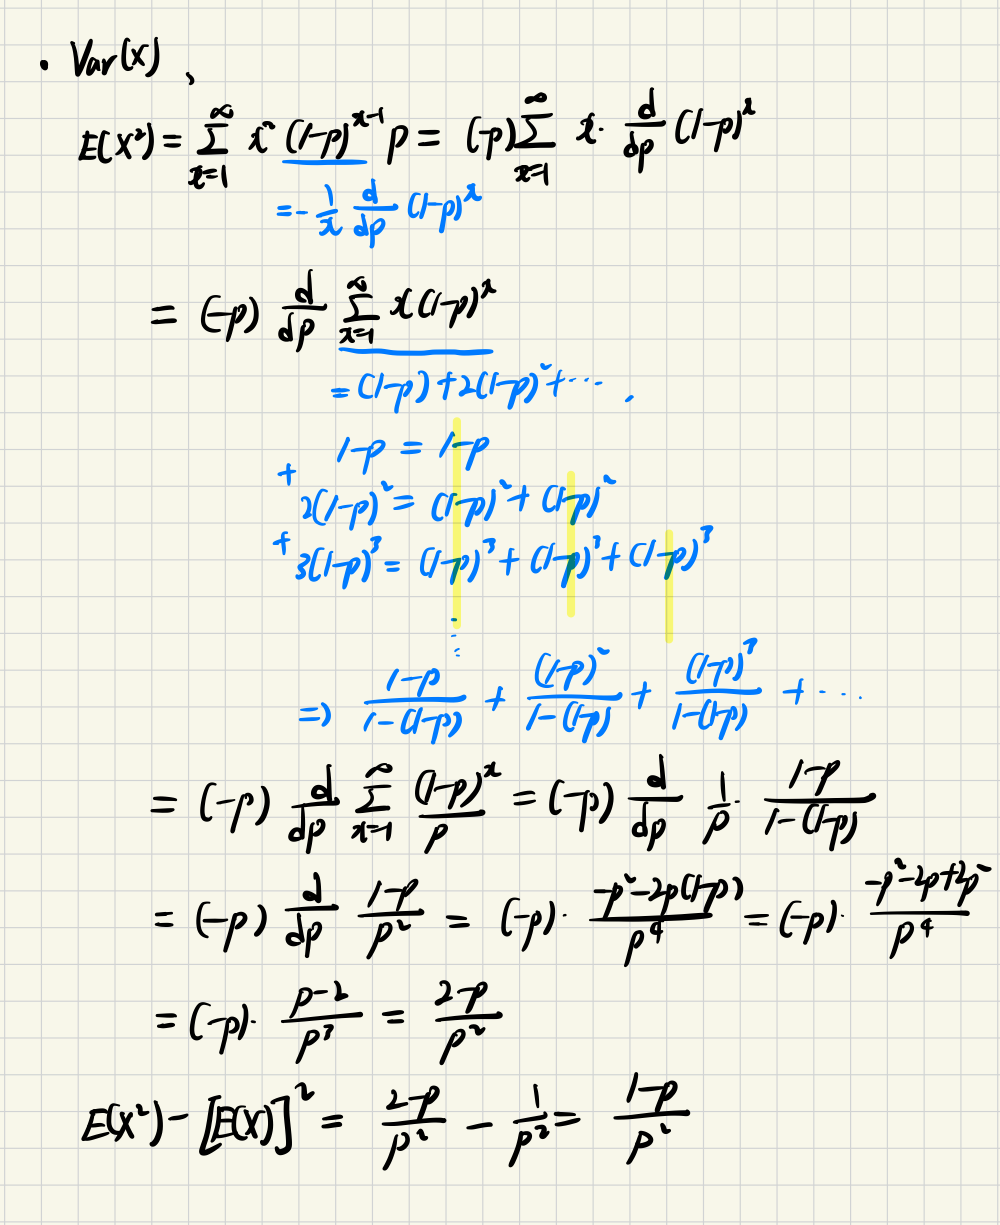 · Var(X),
E(X²) = ∑_{x=1}^{∞} x² (1-p)^{x-1} p = (-p) ∑_{x=1}^{∞} x · d/dp (1-p)^x
= - 1/x d/dp (1-p)^x
= (-p) d/dp ∑_{x=1}^{∞} x(1-p)^x
= (1-p) + 2(1-p)² + ··· .
1-p = 1-p
+ 2(1-p)² = (1-p)² + (1-p)²
+ 3(1-p)³ = (1-p)³ + (1-p)³ + (1-p)³
⋮
=> (1-p)/(1-(1-p)) + (1-p)²/(1-(1-p)) + (1-p)³/(1-(1-p)) + ···
= (-p) d/dp ∑_{x=1}^{∞} (1-p)^x/p = (-p) d/dp 1/p · (1-p)/(1-(1-p))
= (-p) d/dp (1-p)/p² = (-p) · (-p²-2p(1-p))/p⁴ = (-p) · (-p²-2p+2p²)/p⁴
= (-p) · (p-2)/p³ = (2-p)/p²
E(X²) - [E(X)]² = (2-p)/p² - 1/p² = (1-p)/p²